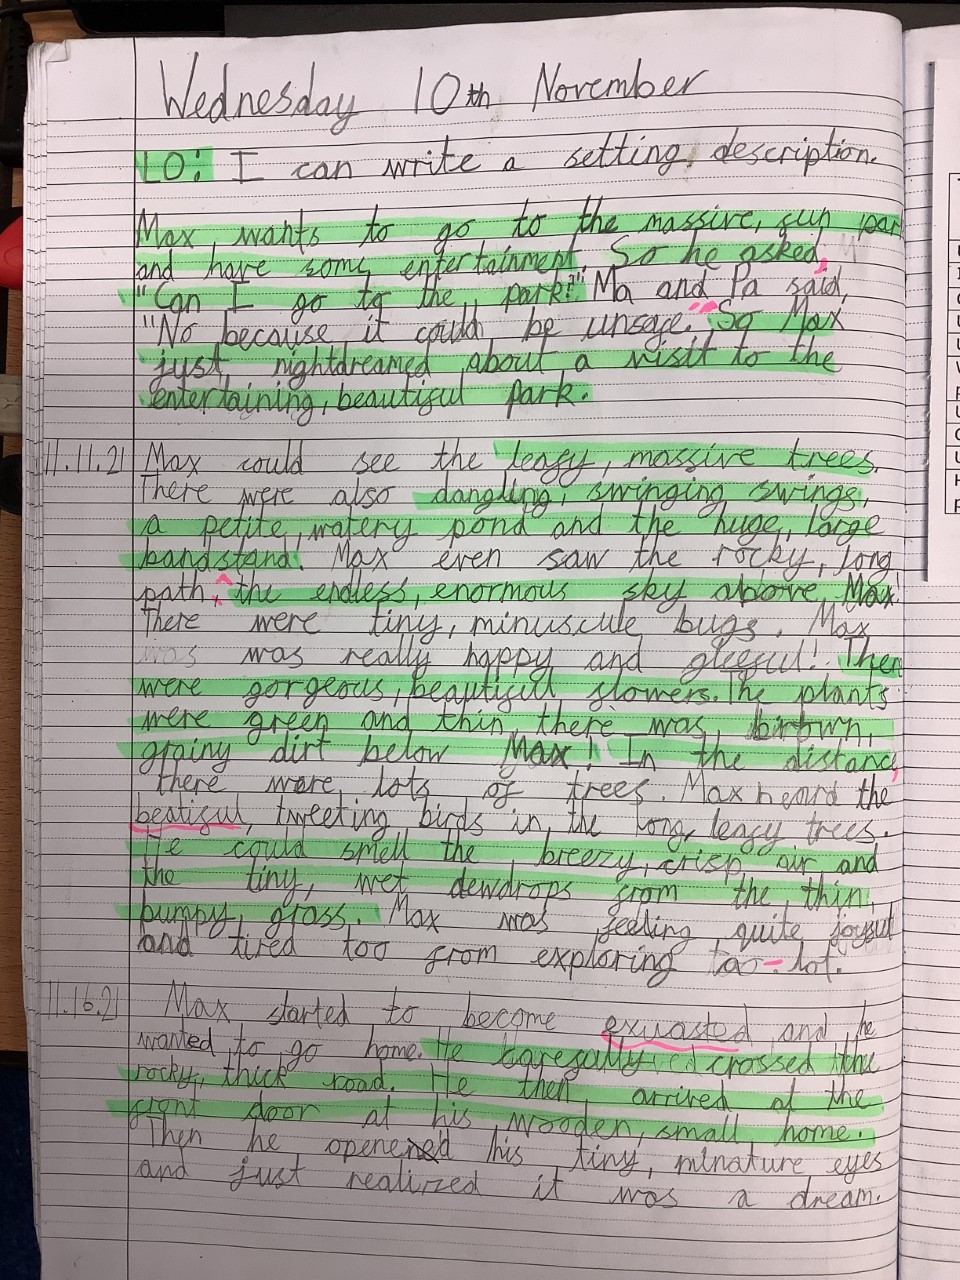 Wednesday 10th November
LO: I can write a setting description.
Max wants to go to the massive, fun par
and have some entertainment. So he asked,
"Can I go to the park?" Ma and Pa said,
"No because it could be unsafe." So Max
just nightdreamed about a visit to the
entertaining, beautiful park.
11.11.21 Max could see the leafy, massive trees.
There were also dangling, swinging swings,
a petite, watery pond and the huge, large
bandstand. Max even saw the rocky, long
path, the endless, enormous sky above Max!
There were tiny, minuscule bugs. Max
was was really happy and gleeful! Ther
were gorgeous, beautifull flowers. The plants
were green and thin, there was brown,
grainy dirt below Max! In the distanc,
there were lots of trees. Max heard the
beatiful, tweeting birds in the long, leafy trees.
He could smell the breezy, crisp air and
the tiny, wet dewdrops from the thin,
bumpy, grass. Max was feeling quite joyful
and tired too from exploring lot.
11.16.21 Max started to become exuasted and he
wanted to go home. He crossed the
rocky, thick road. He then arrived at the
front door at his wooden, small home.
Then he opened his tiny, minature eyes
and just realized it was a dream.